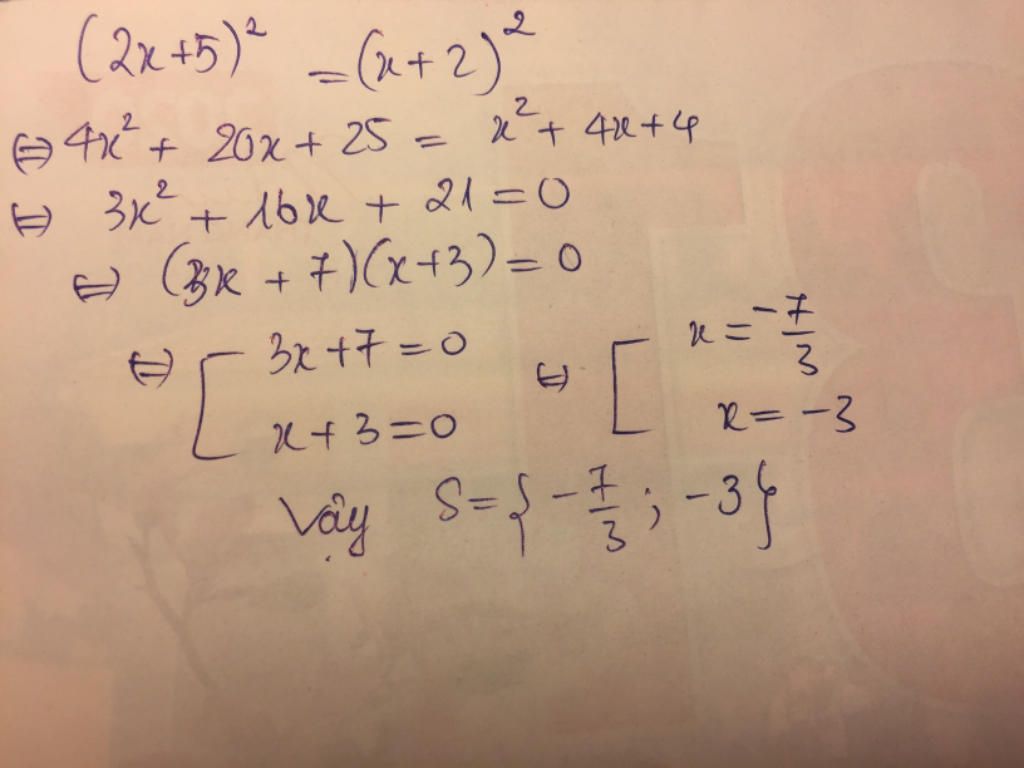 (2x+5)² = (x+2)²
⇔ 4x² + 20x + 25 = x² + 4x + 4
⇔ 3x² + 16x + 21 = 0
⇔ (3x + 7)(x+3) = 0
⇔ [ 3x+7=0 ⇔ [ x = -7/3
x+3=0 x = -3
Vậy S = { -7/3 ; -3 }